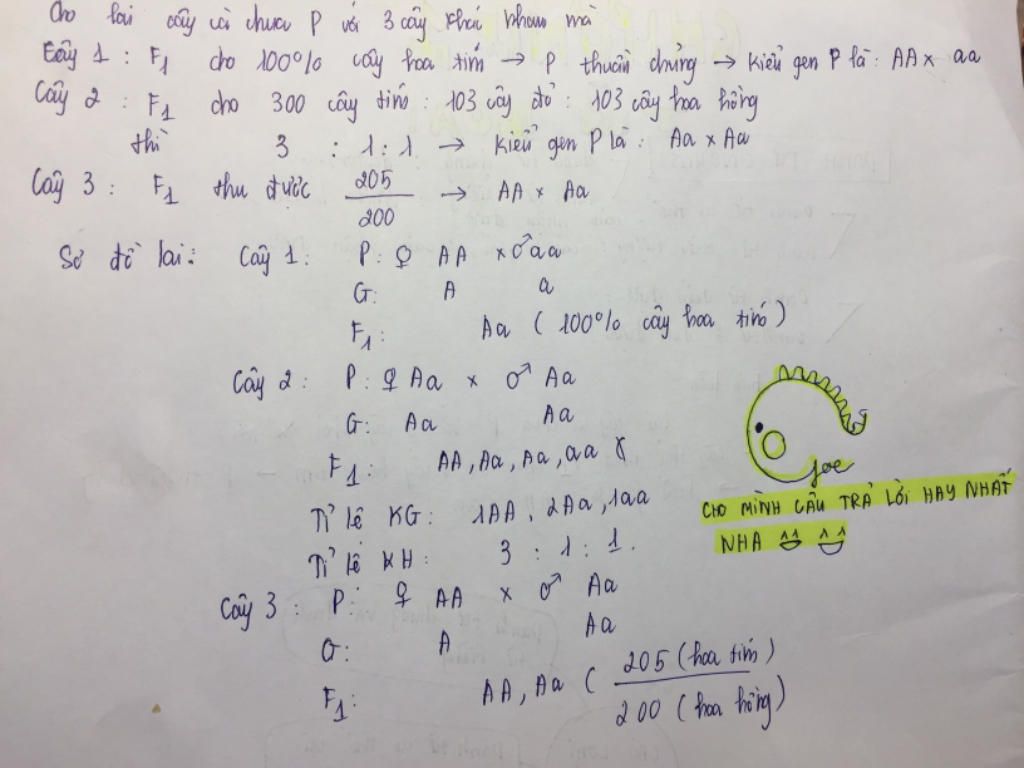 Cho lai cây cà chua P với 3 cây khác nhau mà
Cây 1 : F1 cho 100% cây hoa tím → P thuần chủng → kiểu gen P là : AA x aa
Cây 2 : F1 cho 300 cây tím : 103 cây đỏ : 103 cây hoa hồng
thì 3 : 1 : 1 → kiểu gen P là : Aa x Aa
Cây 3 : F1 thu được 205/200 → AA x Aa
Sơ đồ lai : Cây 1 : P : ♀ AA x ♂ aa
G : A a
F1 : Aa ( 100% cây hoa tím )
Cây 2 : P : ♀ Aa x ♂ Aa
G : Aa Aa
F1 : AA , Aa , Aa , aa
Tỉ lệ KG : 1AA , 2Aa , 1aa
Tỉ lệ KH : 3 : 1 : 1 .
Cây 3 : P : ♀ AA x ♂ Aa
G : A Aa
F1 : AA , Aa ( 205 (hoa tím) / 200 (hoa hồng) )
Joe
CHO MÌNH CÂU TRẢ LỜI HAY NHẤT
NHA